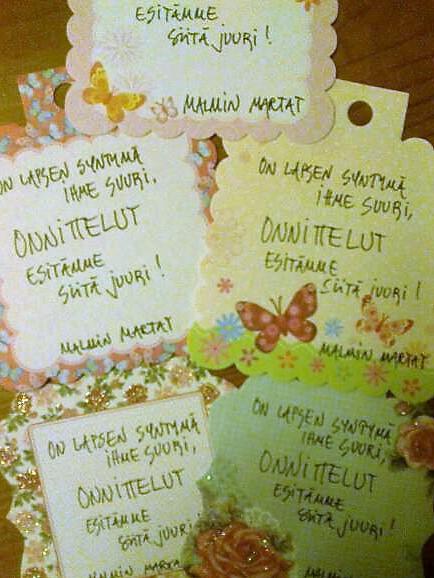 ESITÄMME
SIITÄ JUURI!
MALMIN MARTAT
ON LAPSEN SYNTYMÄ
IHME SUURI,
ONNITTELUT
ESITÄMME
SIITÄ JUURI!
MALMIN MARTAT
ON LAPSEN SYNTYMÄ
IHME SUURI,
ONNITTELUT
ESITÄMME
SIITÄ JUURI!
MALMIN MARTAT
ON LAPSEN SYNTYMÄ
IHME SUURI,
ONNITTELUT
ESITÄMME
SIITÄ JUURI
MALMIN MARTAT
ON LAPSEN SYNTYMÄ
IHME SUURI,
ONNITTELUT
ESITÄMME
SIITÄ JUURI!